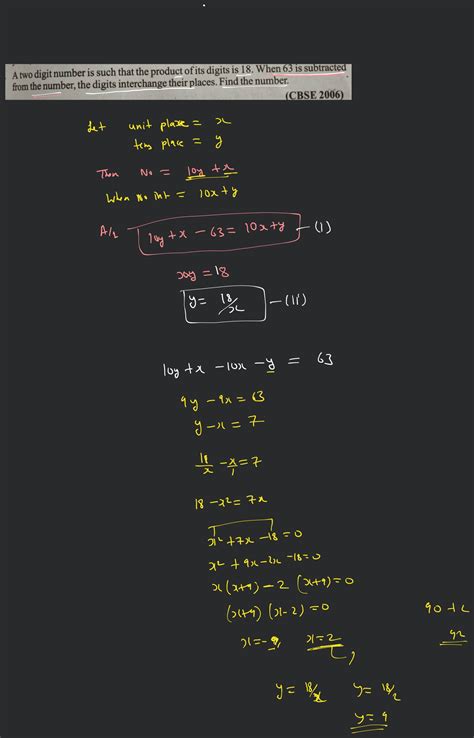 A two digit number is such that the product of its digits is 18. When 63 is subtracted
from the number, the digits interchange their places. Find the number.
(CBSE 2006)
Let unit place = x
tens place = y
Then No = 10y + x
When no int = 10x + y
A/q 10y + x - 63 = 10x + y - (1)
xy = 18
y = 18/x - (ii)
10y + x - 10x - y = 63
9y - 9x = 63
y - x = 7
18/x - x/1 = 7
18 - x² = 7x
x² + 7x - 18 = 0
x² + 9x - 2x - 18 = 0
x(x+9) - 2(x+9) = 0
(x+9)(x-2) = 0
90+2
x = -9, x = 2
92
y = 18/x y = 18/2
y = 9